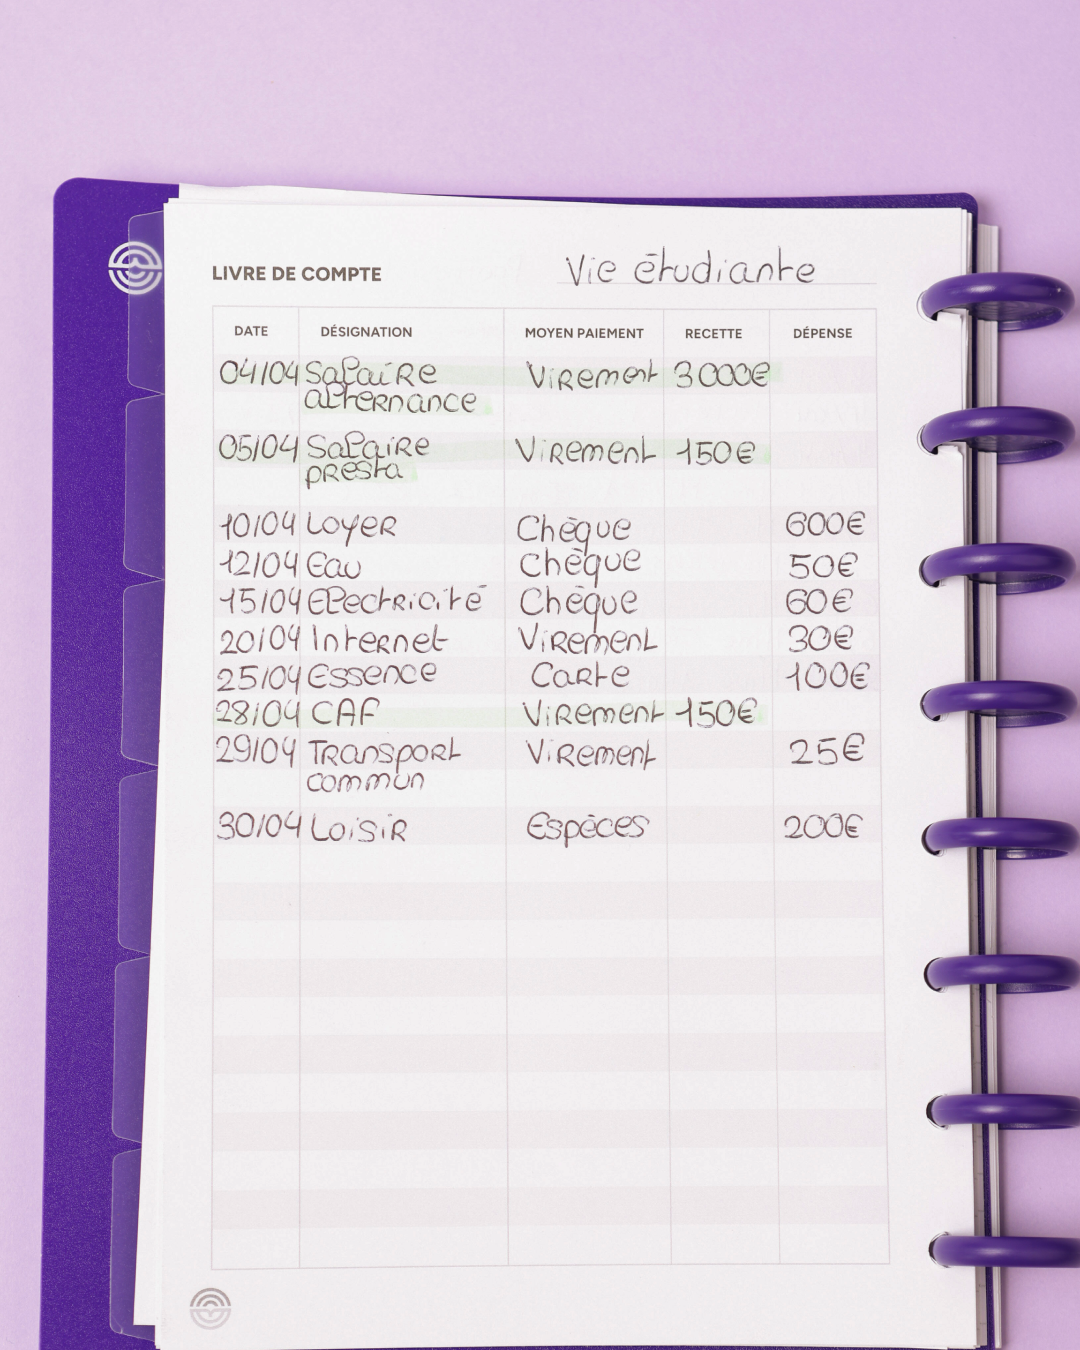 LIVRE DE COMPTE Vie étudiante
DATE DÉSIGNATION MOYEN PAIEMENT RECETTE DÉPENSE
04/04 Salaire Virement 3000€
alternance
05/04 Salaire Virement 150€
presta
10/04 Loyer Chèque 600€
12/04 Eau Chèque 50€
15/04 Electricité Chèque 60€
20/04 Internet Virement 30€
25/04 Essence Carte 100€
28/04 CAF Virement 150€
29/04 Transport Virement 25€
commun
30/04 Loisir Espèces 200€